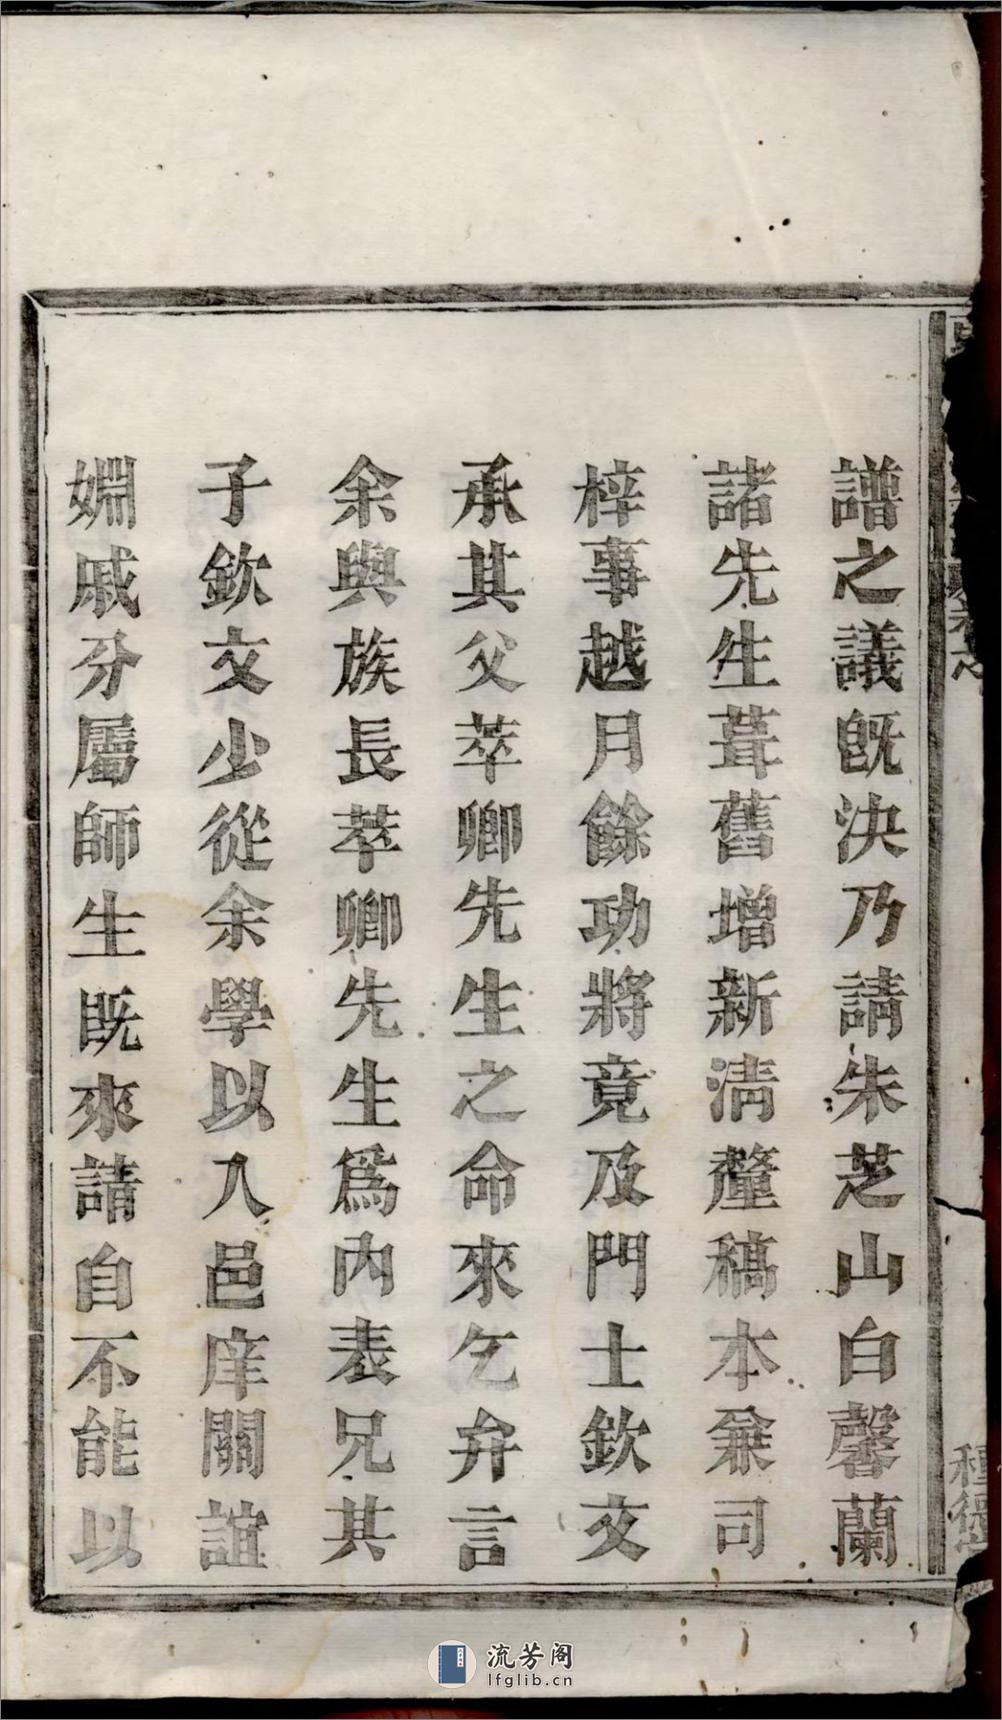 譜之議旣決乃請朱芝山白馨蘭
諸先生葺舊增新淸釐稿本兼司
梓事越月餘功將竟及門士欽文
承其父萃卿先生之命來乞弁言
余與族長萃卿先生爲內表兄其
子欽文少從余學以入邑庠關誼
婣戚分屬師生旣來請自不能以
流芳阁
lfglib.cn